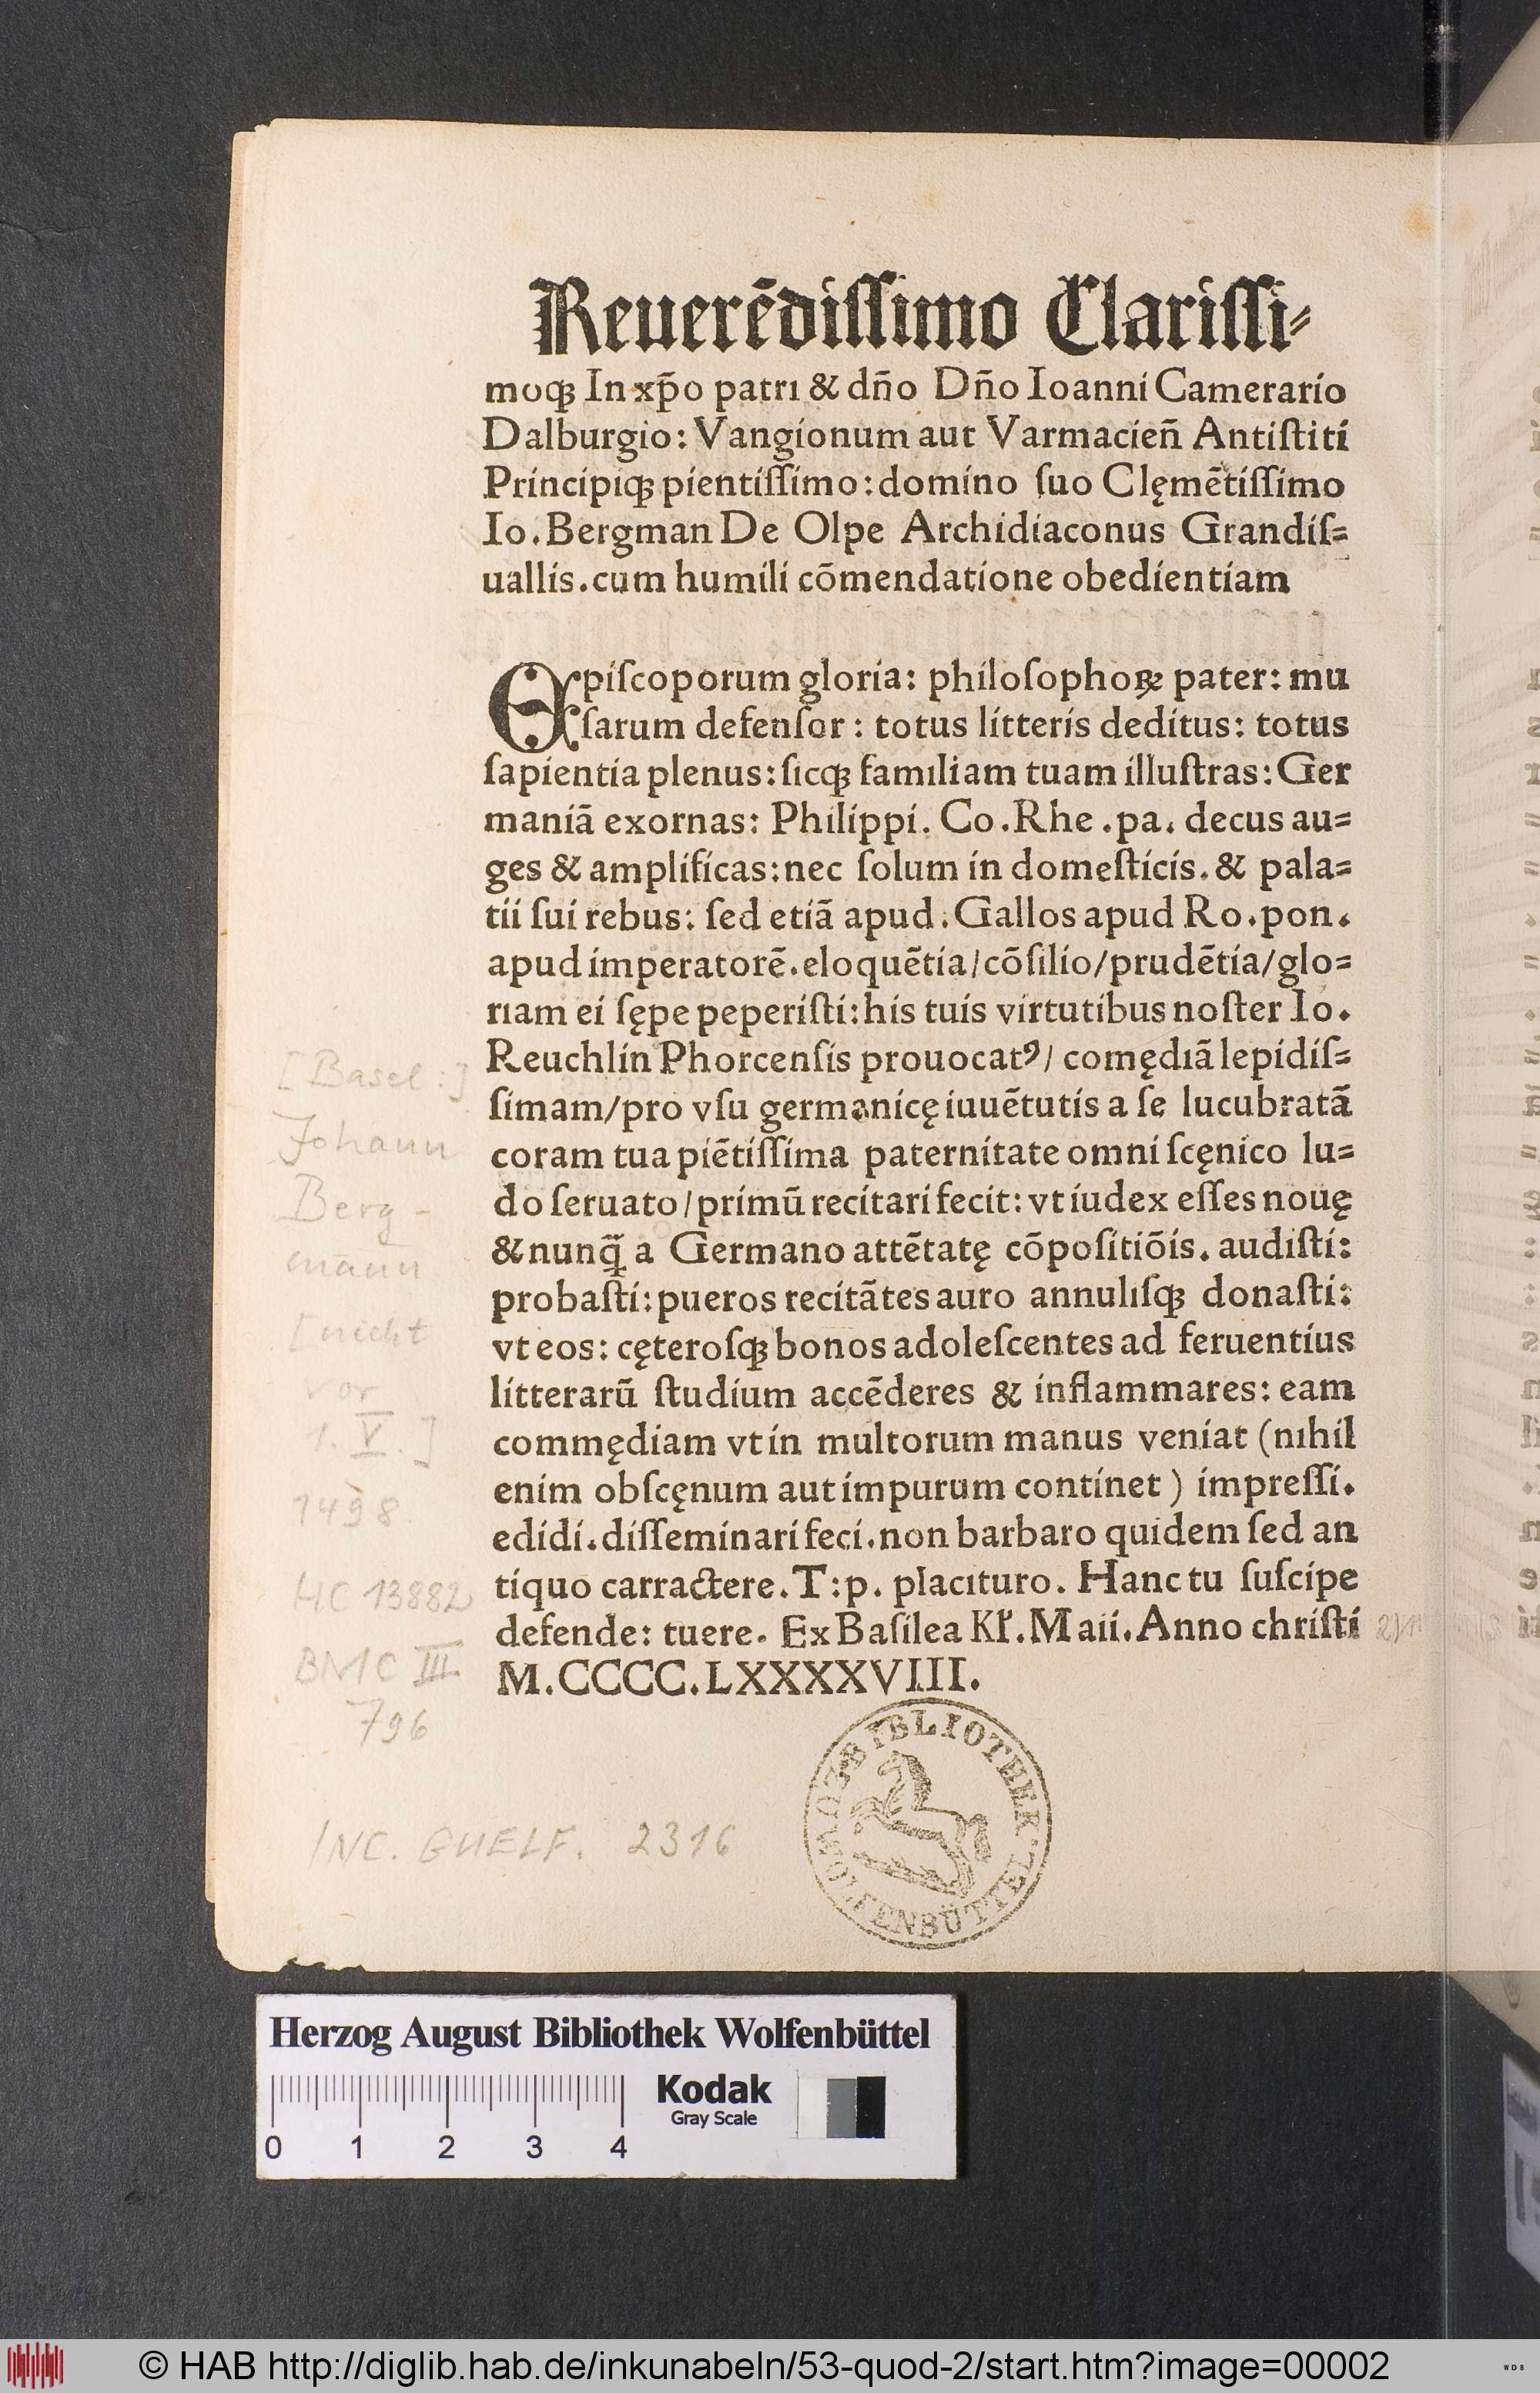 Reuerēdiſſimo Clariſſi⸗
moqꝫ In xp̄o patri & dn̄o Dn̄o Ioanni Camerario
Dalburgio: Vangionum aut Varmacien̄ Antiſtiti
Principiqꝫ pientiſſimo: domino ſuo Clęmētiſſimo
Io. Bergman De Olpe Archidiaconus Grandiſ⸗
uallis. cum humili cōmendatione obedientiam
Epiſcoporum gloria: philoſophoꝝ pater: mu
ſarum defenſor: totus litteris deditus: totus
ſapientia plenus: ſicqꝫ familiam tuam illuſtras: Ger
maniā exornas: Philippi. Co. Rhe. pa. decus au⸗
ges & amplificas: nec ſolum in domeſticis. & pala⸗
tii ſui rebus: ſed etiā apud. Gallos apud Ro. pon.
apud imperatorē. eloquētia/cōſilio/prudētia/glo⸗
riam ei ſępe peperiſti: his tuis virtutibus noſter Io.
Reuchlin Phorcenſis prouocatꝰ/ comędiā lepidiſ⸗
ſimam/pro vſu germanicę iuuētutis a ſe lucubratā
coram tua piētiſſima paternitate omni ſcęnico lu⸗
do ſeruato/primū recitari fecit: vt iudex eſſes nouę
& nunq̄ a Germano attētatę cōpoſitiōis. audiſti:
probaſti: pueros recitātes auro annuliſqꝫ donaſti:
vt eos: cęteroſqꝫ bonos adoleſcentes ad feruentius
litterarū ſtudium accēderes & inflammares: eam
commędiam vt in multorum manus veniat (nihil
enim obſcęnum aut impurum continet) impreſſi.
edidi. diſſeminari feci. non barbaro quidem ſed an
tiquo carractere. T: p. placituro. Hanc tu ſuſcipe
defende: tuere. Ex Baſilea Kl̄. Maii. Anno chriſti
M.CCCC.LXXXXVIII.
[Basel:]
Johann
Berg-
mann
[nicht
vor
1. V.]
1498.
HC 13882
BMC III.
796
INC. GUELF. 2316
BIBLIOTHEK
WOLFENBÜTTEL
Herzog August Bibliothek Wolfenbüttel
Kodak
Gray Scale
0 1 2 3 4
© HAB http://diglib.hab.de/inkunabeln/53-quod-2/start.htm?image=00002
WDB